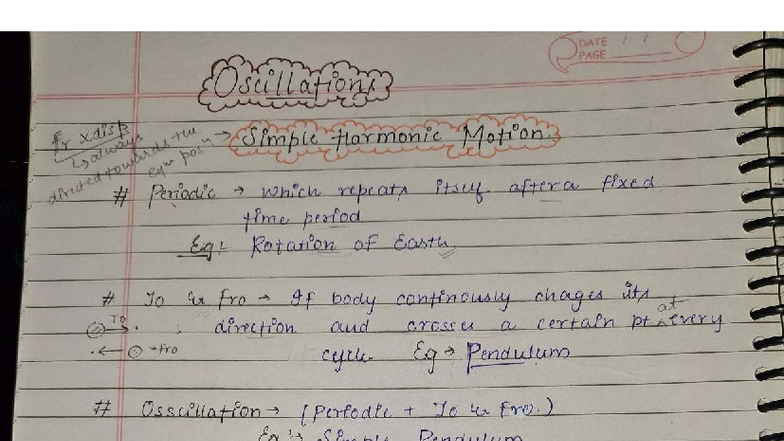 DATE / /
PAGE
Oscillations
Fr ∝ disp
↳ always
directed towards the
eqm posn
→ Simple Harmonic Motion.
# Periodic → which repeats itself after a fixed
time period
Eg: Rotation of Earth
# To & fro → If body continously chages its
direction and crosses a certain pt at every
cycle. Eg → Pendulum
To
fro
# Osscillation → (Periodic + To & fro.)
Eg: → Simple Pendulum